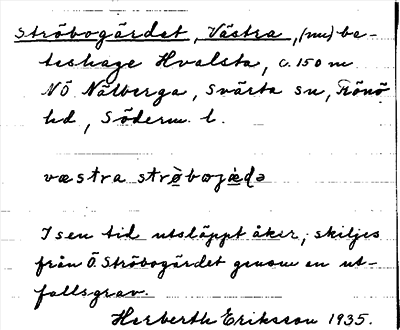 Ströbogärdet, Västra, (nu) be-
teshage Hvalsta, c. 150 m
NÖ Nälberga, Svärta sn, Rönö
hd, Söderm. l.
væstra strøbojæ̀də
I sen tid utsläppt åker, skiljes
från Ö. Ströbogärdet genom en ut-
fallsgrav.
Herberth Eriksson 1935.